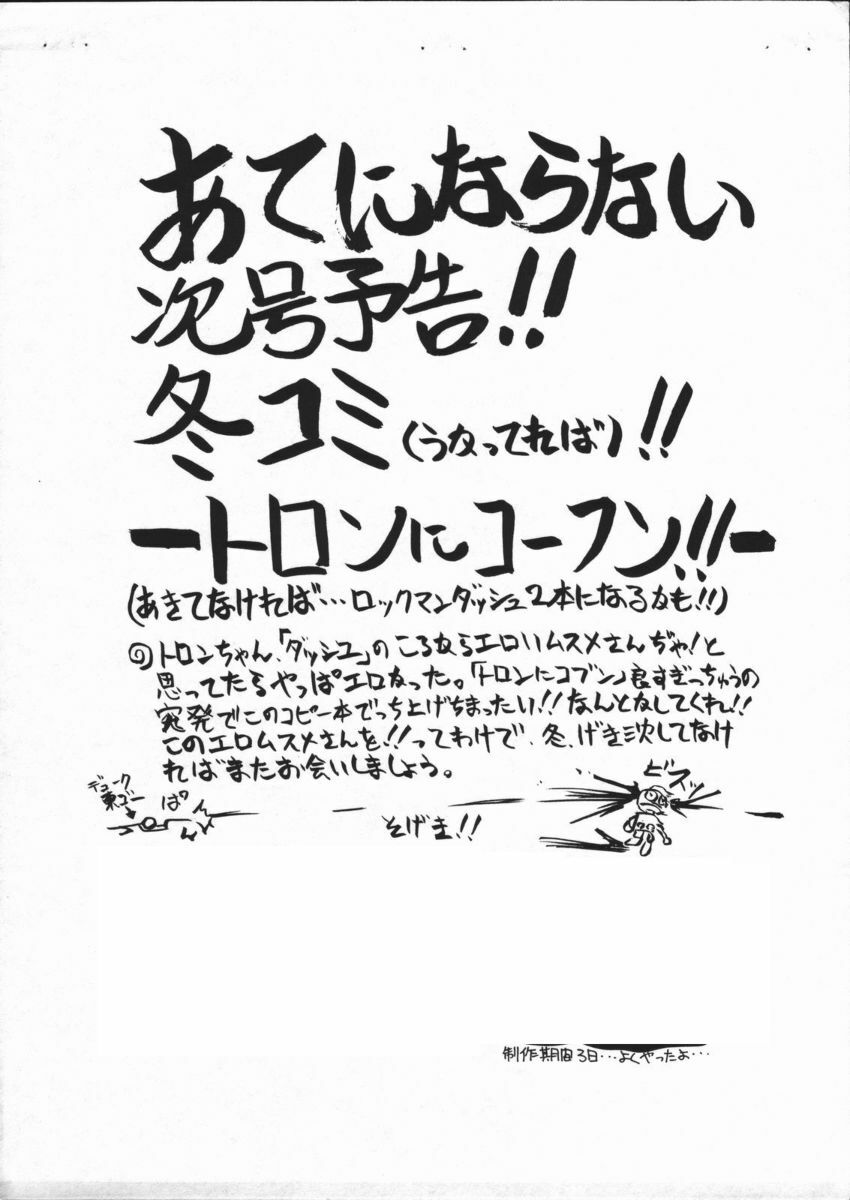 あてにならない
次号予告!!
冬コミ(うかってれば)!!
ートロンにコーフン!!ー
(あきてなければ…ロックマンダッシュ2本になるかも!!)
◎トロンちゃん、「ダッシュ」のころからエロいムスメさんぢゃ!と
思ってたらやっぱエロかった。「トロンにコブン」良すぎっちゅうの
突発でこのコピー本でっち上げちまったい!!なんとかしてくれ!!
このエロムスメさんを!!ってわけで、冬、げき沈してなけ
ればまたお会いしましょう。
デューク
東ゴー
ぱん
そげき!!
ビスッ
制作期間3日…よくやったよ…